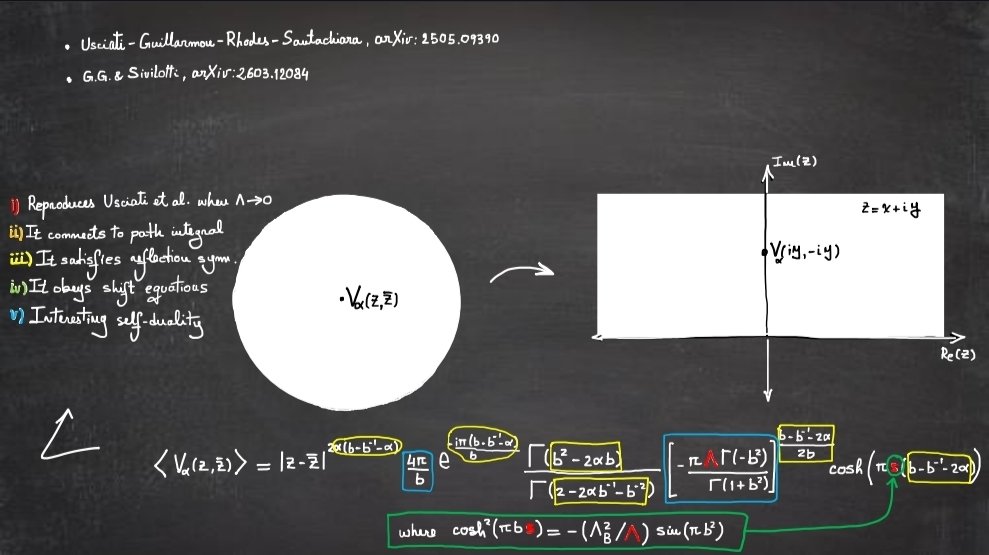 • Usciati-Guillarmou-Rhodes-Santachiara, arXiv: 2505.09390
• G.G. & Sivilotti, arXiv: 2603.12084
i) Reproduces Usciati et al. when Λ→0
ii) It connects to path integral
iii) It satisfies reflection symm.
iv) It obeys shift equations
v) Interesting self-duality
·Vα(z,z̄)
Im(z)
z=x+iy
Vα(iy,-iy)
Re(z)
⟨Vα(z,z̄)⟩ = |z-z̄|^{2α(b-b⁻¹-α)} 4π/b e^{-iπ(b-b⁻¹-α)/b} Γ(b²-2αb)/Γ(2-2αb⁻¹-b⁻²) [-πΛΓ(-b²)/Γ(1+b²)]^{(b-b⁻¹-2α)/2b} cosh(πs(b-b⁻¹-2α))
where cosh²(πbs) = -(Λ_B²/Λ) sin(πb²)